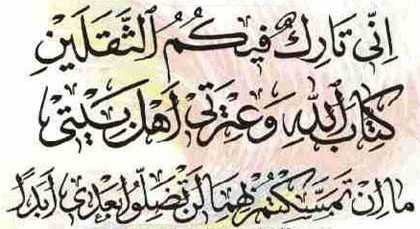 اِنّی تَارِكٌ فیكُمُ الثَّقَلَینِ
كِتابَ اللهِ وَعِتْرَتی اَهْلَ بَیْتی
ما اِنْ تَمَسَّكْتُمْ بِهِمَا لَنْ تَضِلّوُا بَعْدی اَبَدًا